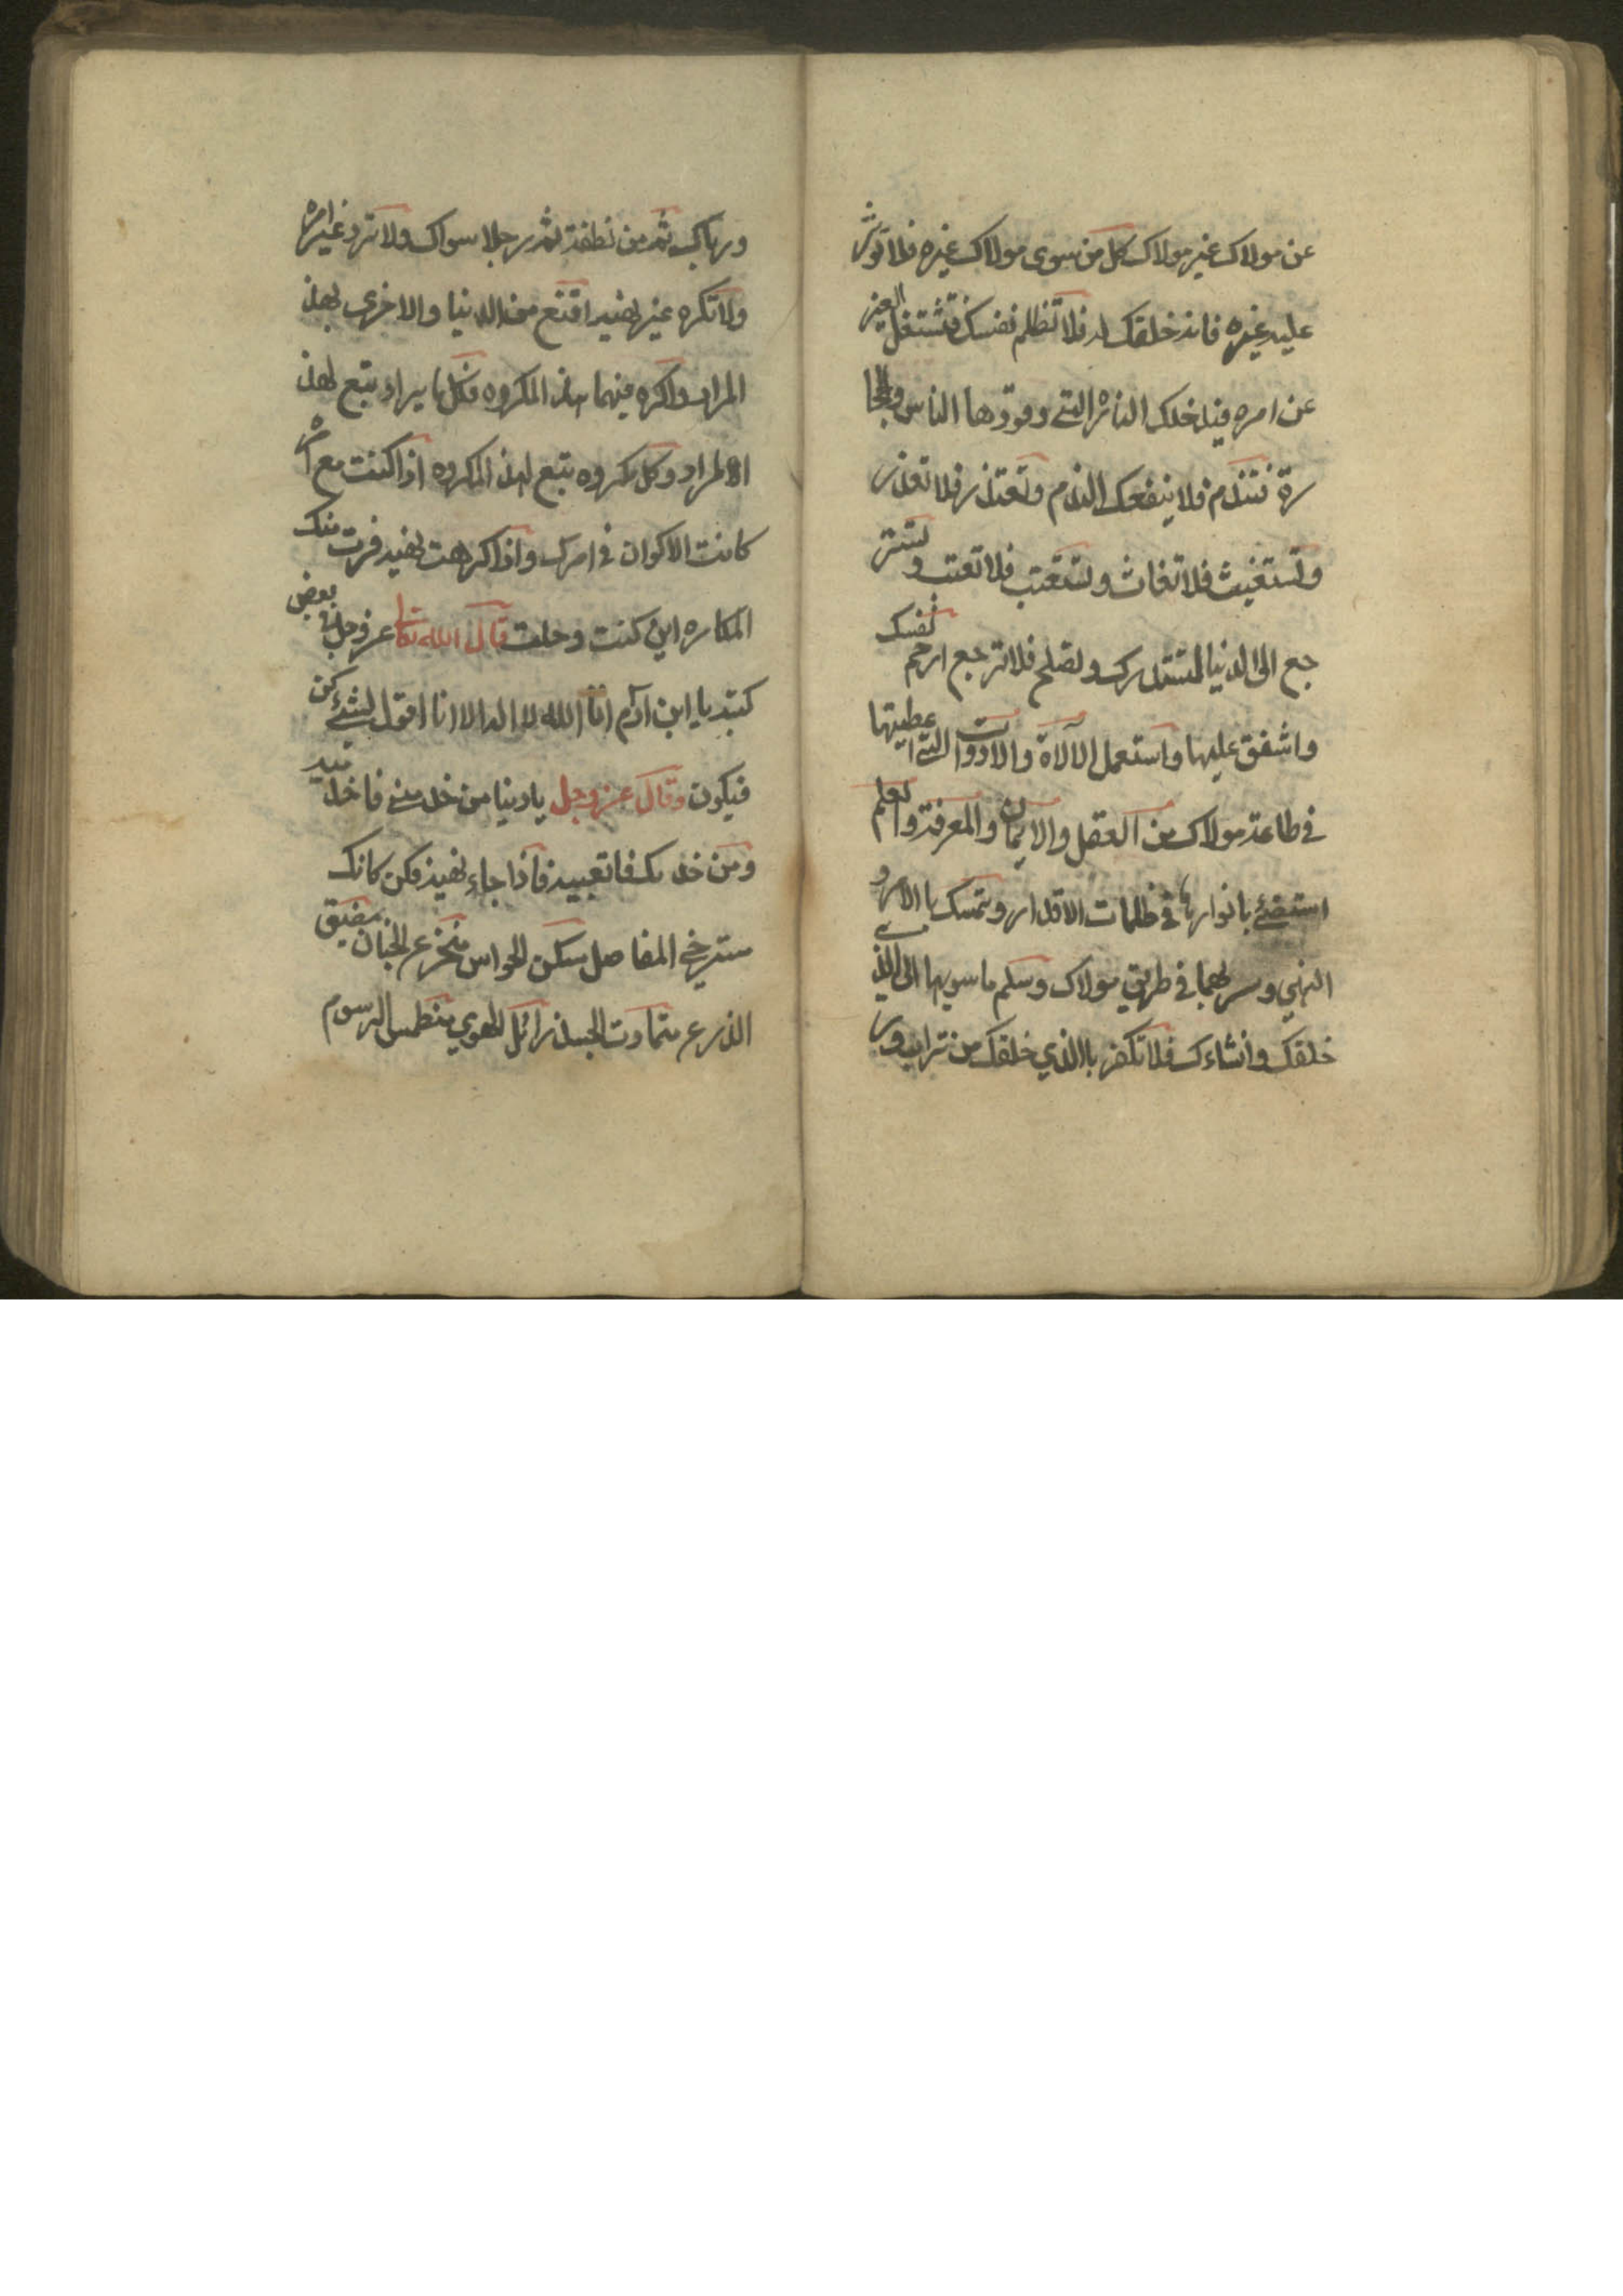 عن مولاك غير مولاك كل من سوى مولاك غيره فلا توثر
عليه غيره فانه خلقك له فلا تظلم نفسك فتشتغل بغيره
عن امره فيدخلك النار التي وقودها الناس والحجا
رة فتندم فلا ينفعك الندم وتعتذر فلا تعذر
وتستغيث فلا تغاث وتستعتب فلا تعتب وتستر
جع الى الدنيا لتستدرك وتصلح فلا ترجع ارحم نفسك
واشفق عليها واستعمل الآلاة والادوات التي اعطيتها
في طاعة مولاك من العقل والايمان والمعرفة والعلم
استضئ بانوارها في ظلمات الاقدار وتمسك بالامر و
النهي وسر بهما في طريق مولاك وسلم ماسويهما الى الذي
خلقك وانشاءك فلا تكفر باالذي خلقك من تراب ور
ورباك ثم من نطفة ثم رجلا سواك ولا ترد غير امره
ولا تكره غير نهيه اقنع من الدنيا والاخرى بهذ
المراد واكره فيهما هذا المكروه فكل ما يراد يتبع لهذ
المراد وكل مكروه يتبع لهذ المكروه اذا كنت مع امره
كانت الاكوان في امرك واذا كرهت نهيه فرت منك
المكاره اين كنت وحللت قال الله تعالى عز وجل في بعض
كتبه يا ابن آدم انا الله لا اله الا انا اقول لشئ كن
فيكون وقال عز وجل يا دنيا من خدمني فاخدميه
ومن خدمك فاتعبيه فاذا جاء نهيه فكن كانك
مسترخي المفاصل سكن الحواس منخزع الجنان مضيق
الذرع متماوت الجسد زائل الهوي منطمس الرسوم